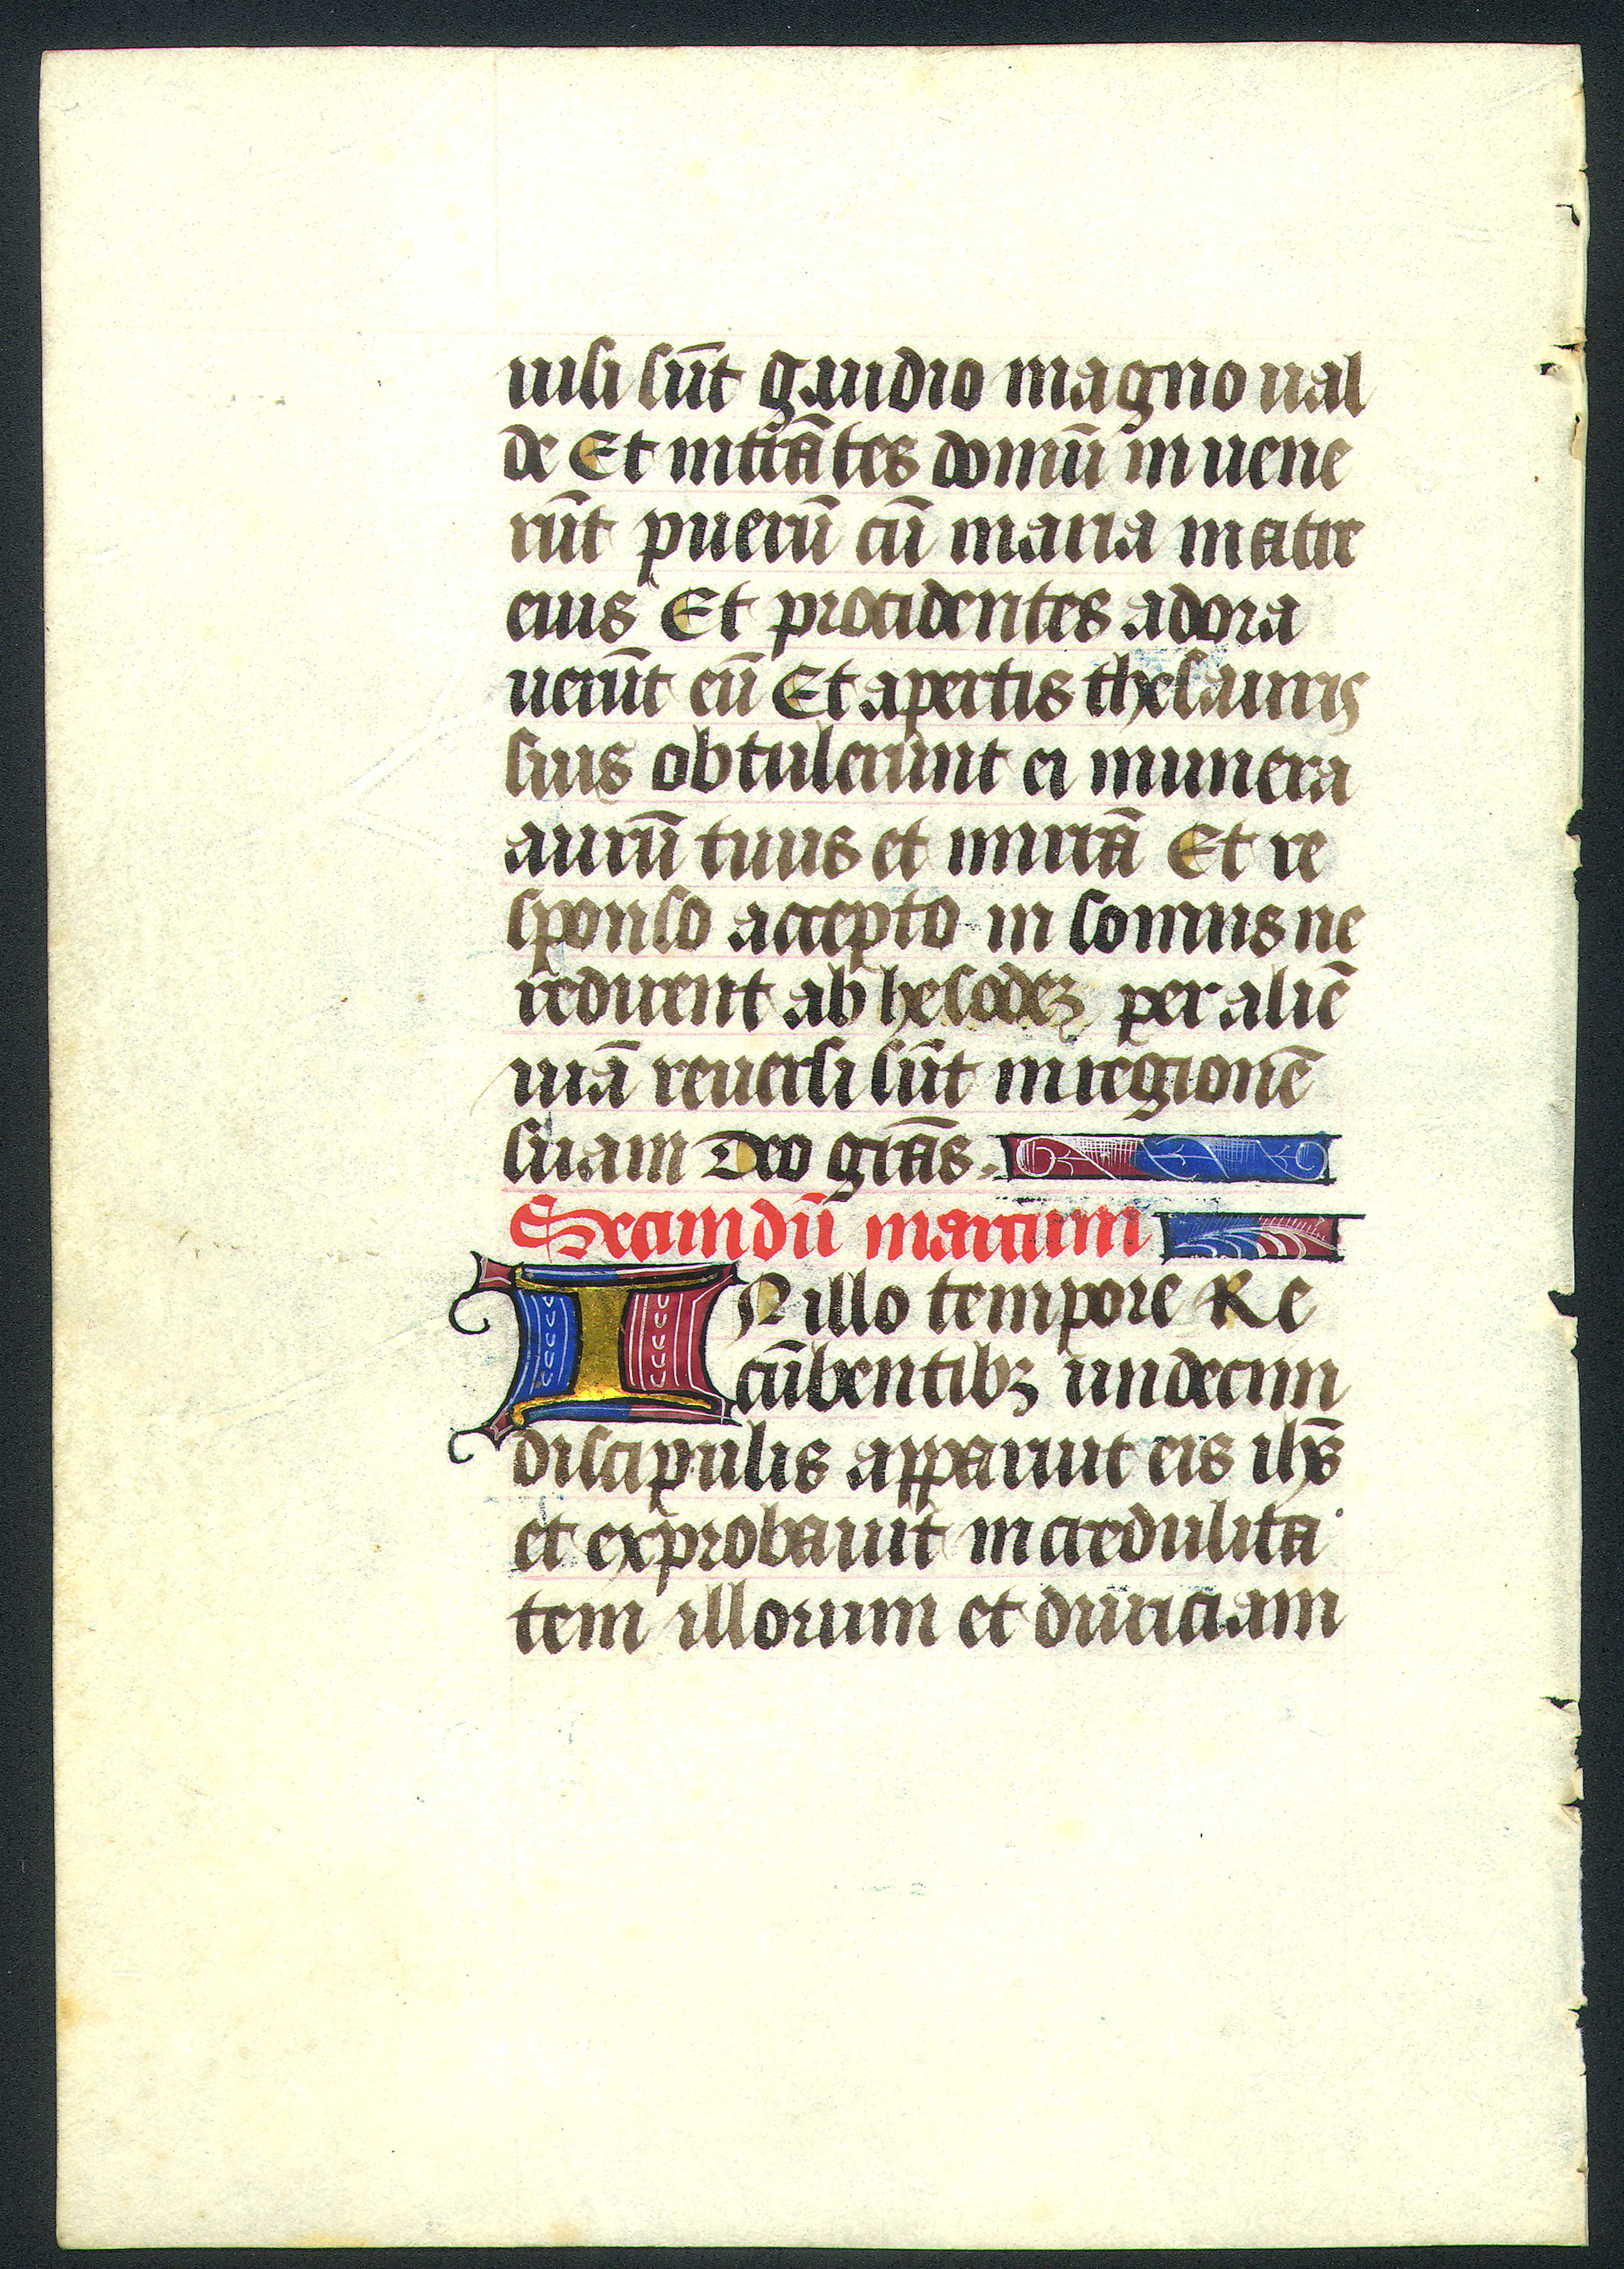 uisi sūt gaudio magno ual
de Et intrātes domū inuene
rūt puerū cū maria matre
eius Et procidentes adora
uerūt eū Et apertis thesauris
suis obtulerunt ei munera
aurū tuus et mirrā Et re
sponso accepto in somnis ne
redirent ab hesodeꝫ per aliē
uiā reuersi sūt in regionē
suam Deo grās.
Secundū marcum
IN illo tempore Re
cūbentibꝫ undecim
discipulis apparuit eis ihs̄
et exprobauit incredulita
tem illorum et duriciam